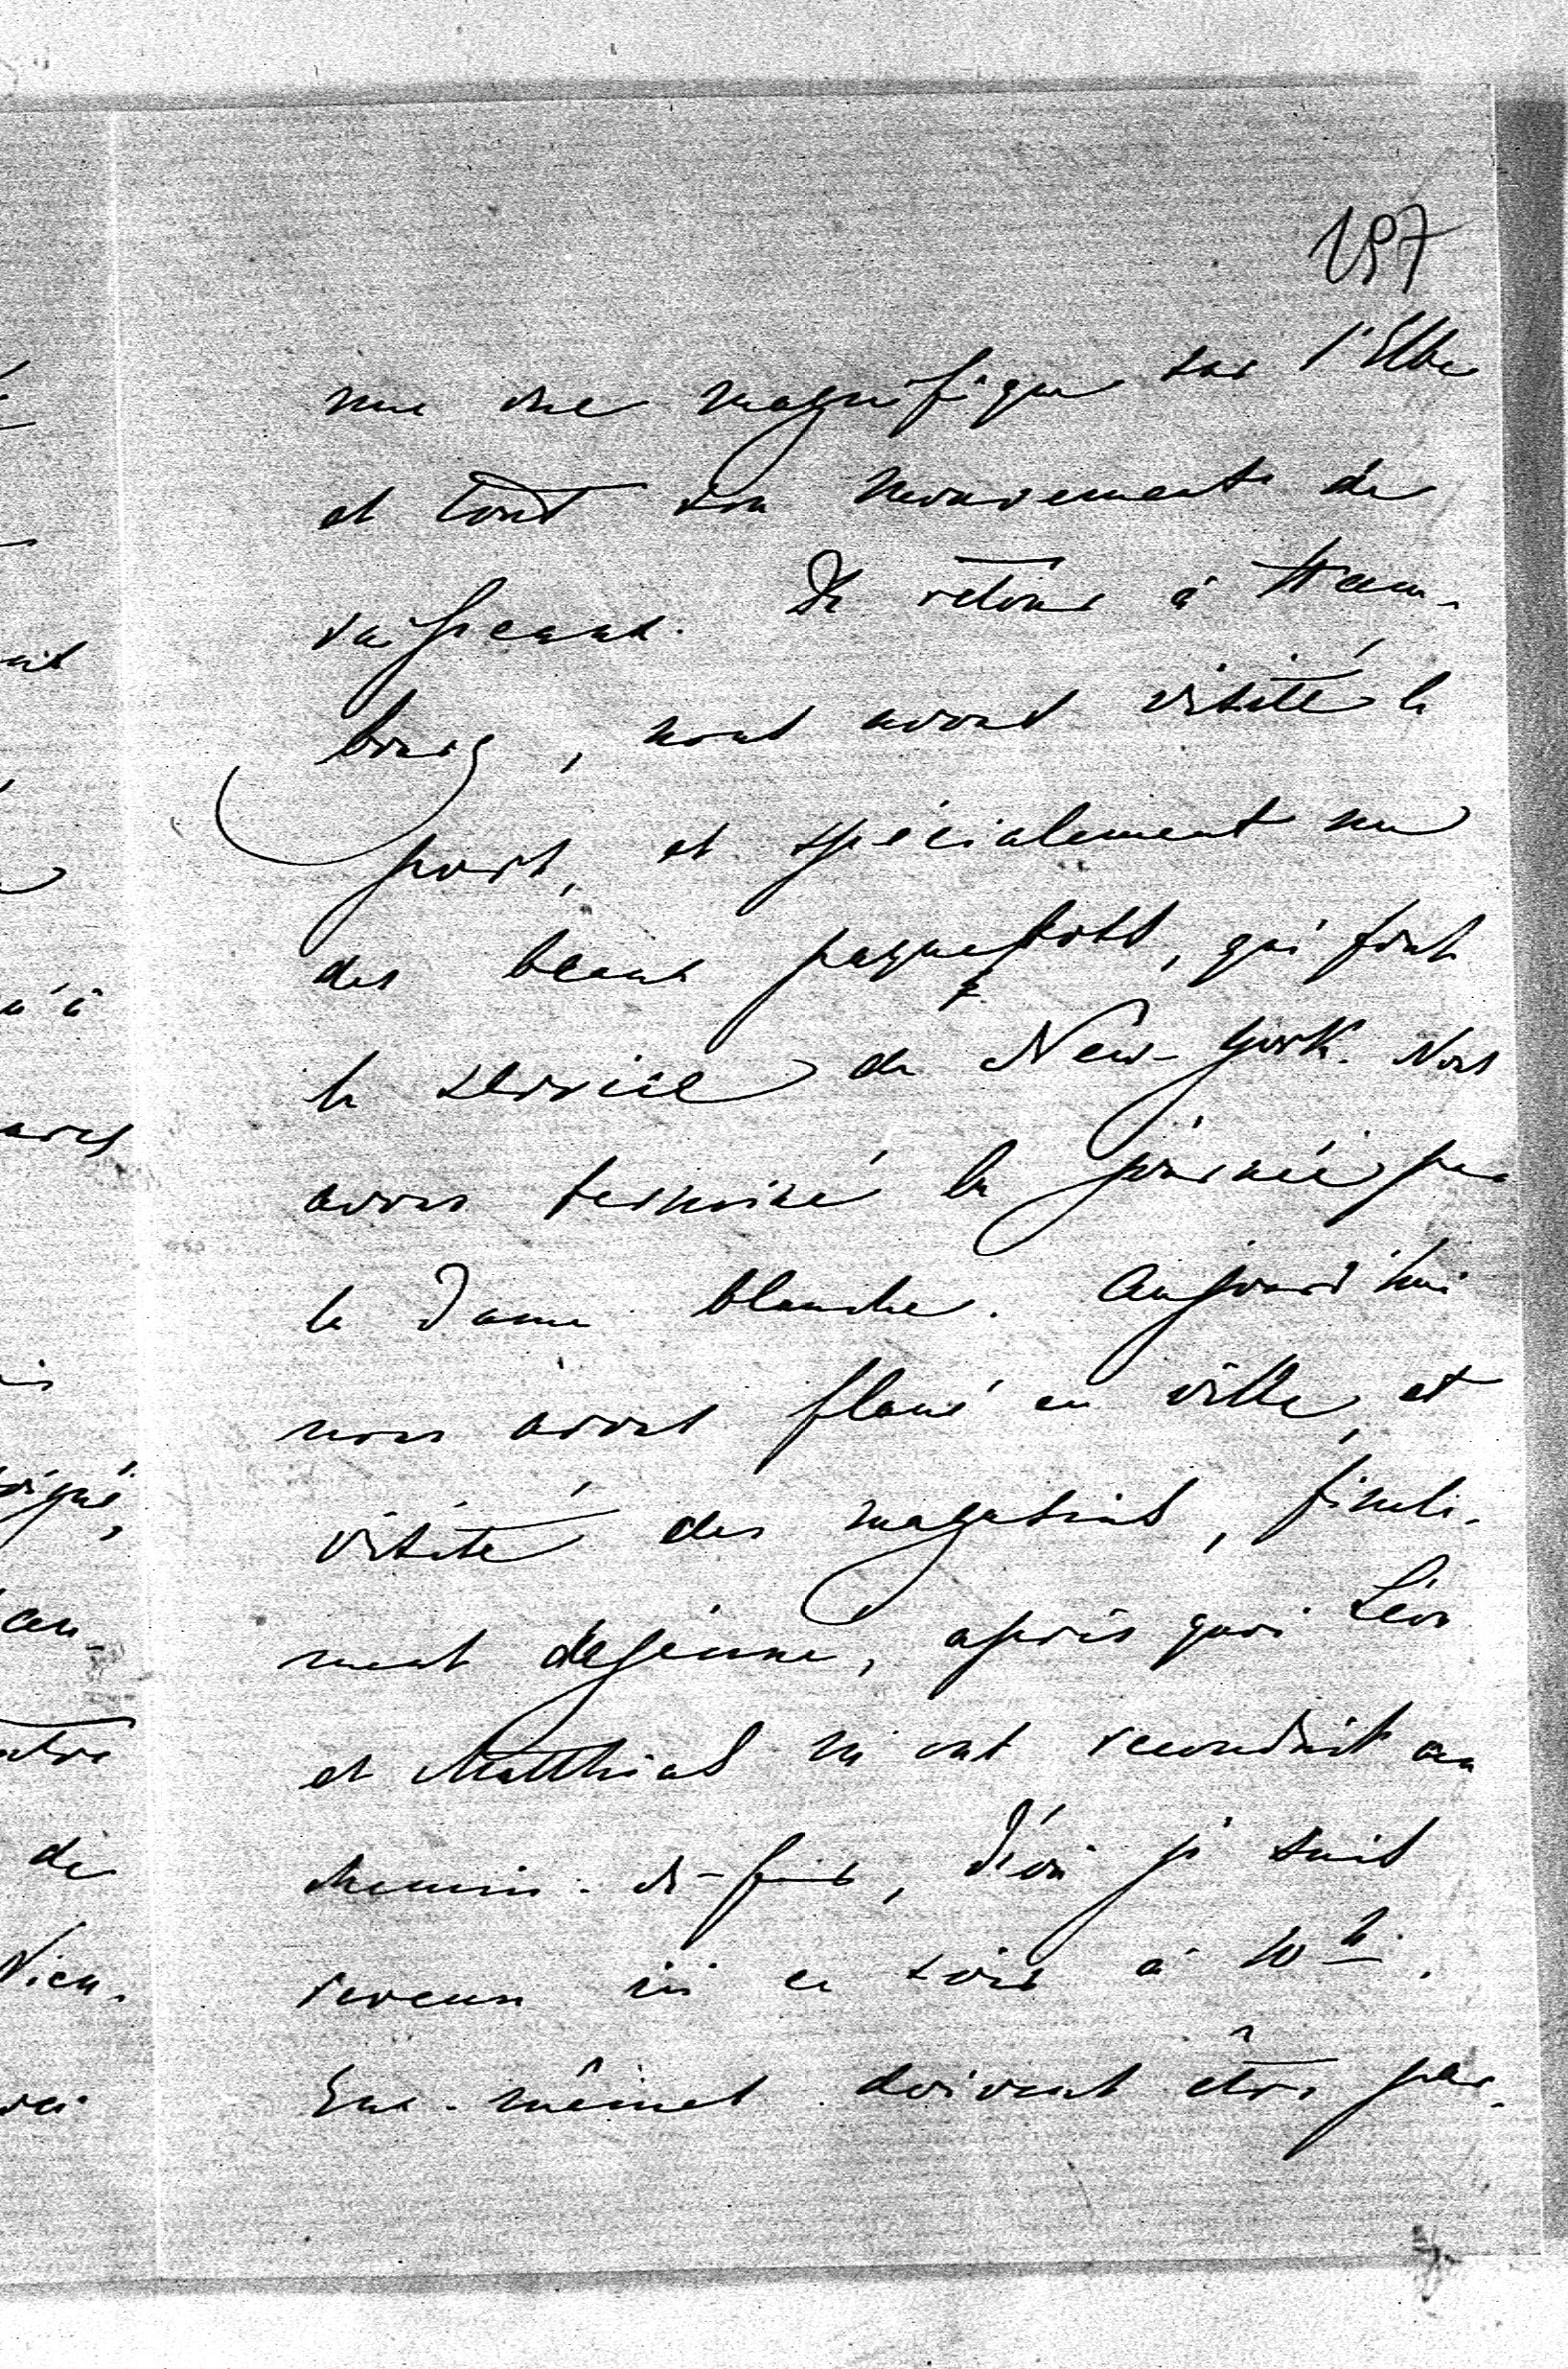 197
une vue magnifique sur l'Elbe
et tout son mouvement de
vaisseaux. De retour à Ham-
bourg, nous avons visité le
port, et spécialement un
des beaux paquebots, qui font
le service de New-York. Nous
avons terminé la journée par
la Dame blanche. Aujourd'hui
nous avons flané en ville, et
visité des magasins, finale-
ment dejeuné, après quoi Léon
et Matthias m'ont reconduit au
chemin-de-fer, d'où je suis
revenu ici ce soir à 10 h.
Eux-mêmes doivent être par-